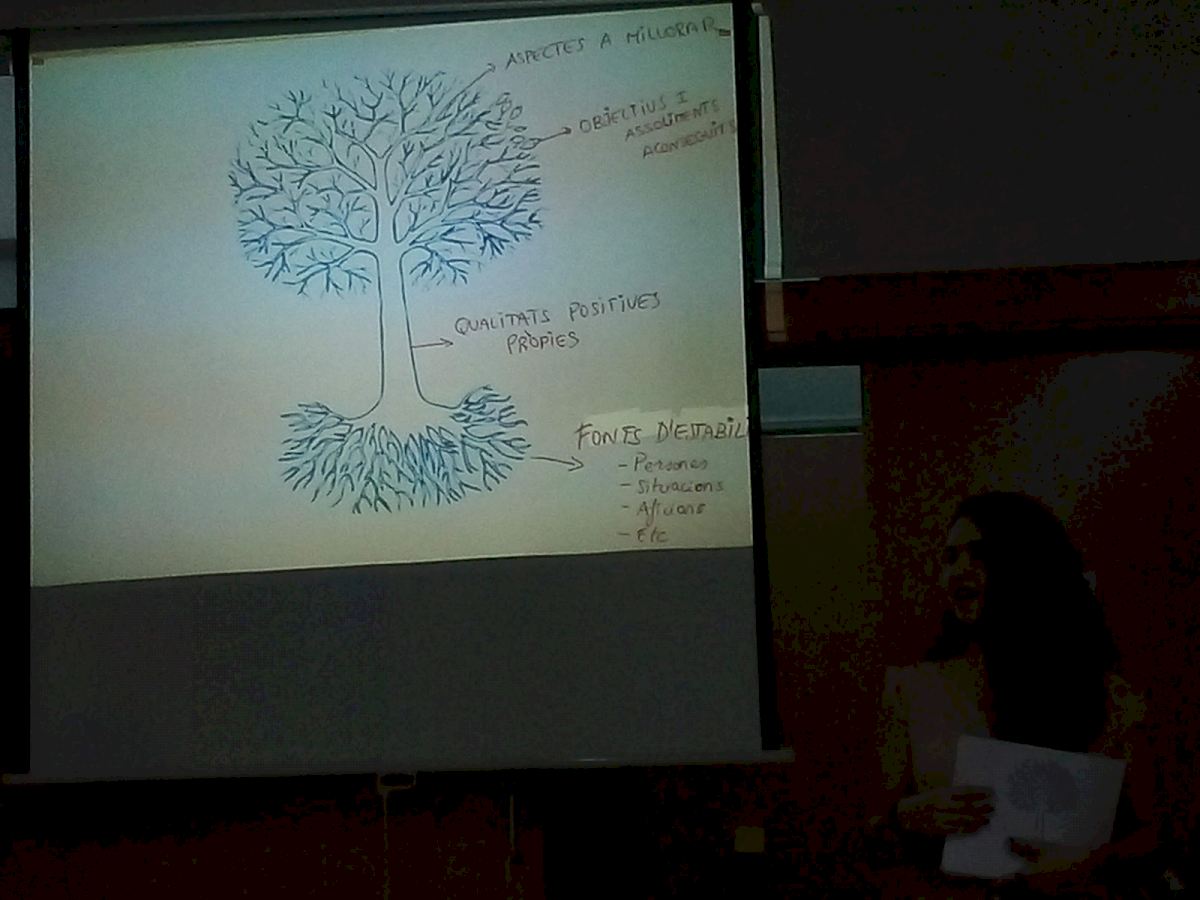 ASPECTES A MILLORAR
OBJECTIUS I
ASSOLIMENTS
ACONSEGUITS
QUALITATS POSITIVES
PRÒPIES
FONTS D'ESTABILI
- Persones
- Situacions
- Aficions
- Etc